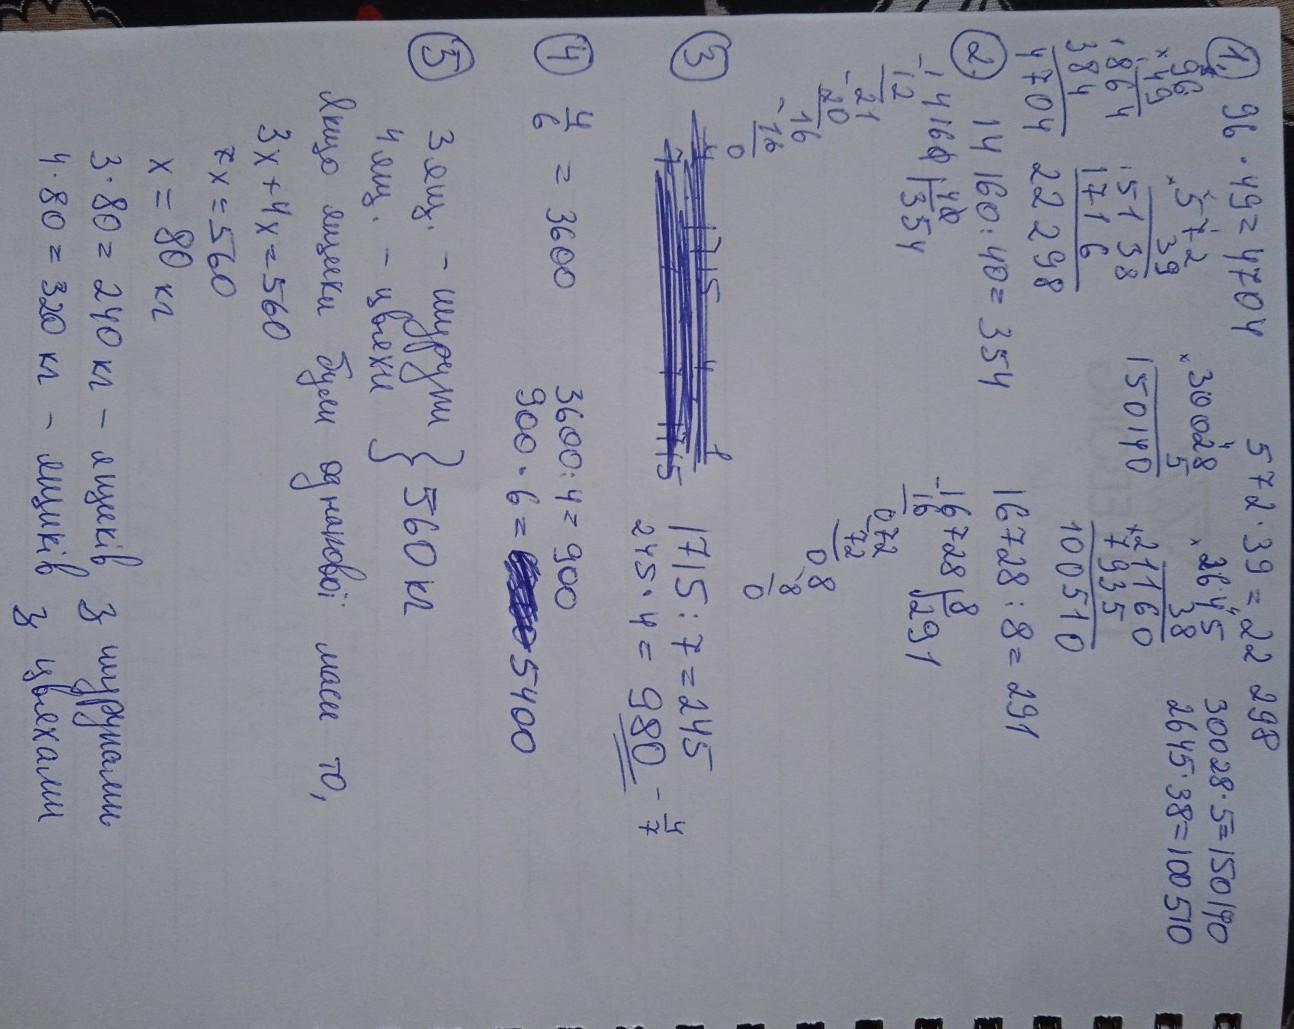 1. 96 · 49 = 4704
572 · 39 = 22 298
30028 · 5 = 150140
2645 · 38 = 100 510
× 96
49
+ 864
384
4704
× 572
39
5138
1716
22298
× 30028
5
150140
× 2645
38
+ 21160
7935
100510
2. 14 160 : 40 = 354
16728 : 8 = 291
- 14160 | 40
12 | 354
- 21
20
- 16
16
0
- 16728 | 8
16 | 291
072
72
08
8
0
3 1715 : 7 = 245
245 · 4 = 980 - 4/7
4 4/6 = 3600
3600 : 4 = 900
900 · 6 = 5400
5 3 ящ. - шурупи
4 ящ. - цвяхи } 560 кг
Якщо ящики були однакової маси то,
3x + 4x = 560
7x = 560
x = 80 кг
3 · 80 = 240 кг - ящиків з шурупами
4 · 80 = 320 кг - ящиків з цвяхами